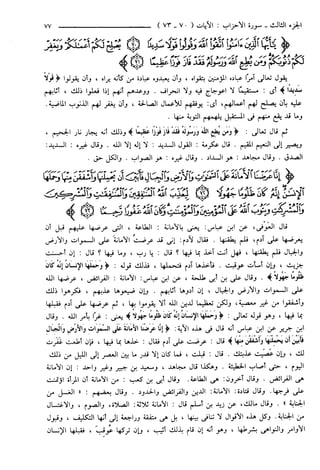 الجزء الثالث - سورة الأحزاب : الآيات ( ٧٠ - ٧٣ ) ٧٧
﴿ يَٰٓأَيُّهَا ٱلَّذِينَ ءَامَنُوا۟ ٱتَّقُوا۟ ٱللَّهَ وَقُولُوا۟ قَوْلًا سَدِيدًا ۝ يُصْلِحْ لَكُمْ أَعْمَٰلَكُمْ وَيَغْفِرْ لَكُمْ
ذُنُوبَكُمْ وَمَن يُطِعِ ٱللَّهَ وَرَسُولَهُۥ فَقَدْ فَازَ فَوْزًا عَظِيمًا ۝ ﴾
يقول تعالى آمرًا عباده المؤمنين بتقواه ، وأن يعبدوه عبادة من كأنه يراه ، وأن يقولوا ﴿ قَوْلًا
سَدِيدًا ﴾ أي : مستقيمًا لا اعوجاج فيه ولا انحراف . ووعدهم أنهم إذا فعلوا ذلك ، أثابهم
عليه بأن يصلح لهم أعمالهم، أي: يوفقهم للأعمال الصالحة ، وأن يغفر لهم الذنوب الماضية.
وما قد يقع منهم في المستقبل يلهمهم التوبة منها .
ثم قال تعالى : ﴿ وَمَن يُطِعِ ٱللَّهَ وَرَسُولَهُۥ فَقَدْ فَازَ فَوْزًا عَظِيمًا ﴾ وذلك أنه يجار من نار الجحيم ،
ويصير إلى النعيم المقيم . قال عكرمة : القول السديد : لا إله إلا الله . وقال غيره : السديد:
الصدق . وقال مجاهد : هو السداد . وقال غيره : هو الصواب . والكل حق .
﴿ إِنَّا عَرَضْنَا ٱلْأَمَانَةَ عَلَى ٱلسَّمَٰوَٰتِ وَٱلْأَرْضِ وَٱلْجِبَالِ فَأَبَيْنَ أَن يَحْمِلْنَهَا وَأَشْفَقْنَ مِنْهَا وَحَمَلَهَا
ٱلْإِنسَٰنُ إِنَّهُۥ كَانَ ظَلُومًا جَهُولًا ۝ لِّيُعَذِّبَ ٱللَّهُ ٱلْمُنَٰفِقِينَ وَٱلْمُنَٰفِقَٰتِ وَٱلْمُشْرِكِينَ وَٱلْمُشْرِكَٰتِ
وَيَتُوبَ ٱللَّهُ عَلَى ٱلْمُؤْمِنِينَ وَٱلْمُؤْمِنَٰتِ وَكَانَ ٱللَّهُ غَفُورًا رَّحِيمًا ۝ ﴾
قال العَوْفي، عن ابن عباس: يعني بالأمانة : الطاعة ، التي عرضها عليهم قبل أن
يعرضها على آدم، فلم يطقنها . فقال لآدم: إني قد عرضتُ الأمانة على السموات والأرض
والجبال فلم يطقنها ، فهل أنت آخذ بما فيها ؟ قال : يا رب ، وما فيها ؟ قال : إن أحسنت
جزيت ، وإن أسأت عوقبت . فأخذها آدم فتحملها ، فذلك قوله : ﴿ وَحَمَلَهَا ٱلْإِنسَٰنُ إِنَّهُۥ كَانَ
ظَلُومًا جَهُولًا ﴾ . وقال علي بن أبي طلحة ، عن ابن عباس: الأمانة : الفرائض ، عرضها الله
على السموات والأرض والجبال ، إن أدوها أثابهم . وإن ضيعوها عذبهم ، فكرهوا ذلك
وأشفقوا من غير معصية، ولكن تعظيما لدين الله ألا يقوموا بها ، ثم عرضها على آدم فقبلها
بما فيها ، وهو قوله تعالى : ﴿ وَحَمَلَهَا ٱلْإِنسَٰنُ إِنَّهُۥ كَانَ ظَلُومًا جَهُولًا ﴾ يعني : غرًّا بأمر الله . وقال
ابن جرير عن ابن عباس أنه قال في هذه الآية: ﴿ إِنَّا عَرَضْنَا ٱلْأَمَانَةَ عَلَى ٱلسَّمَٰوَٰتِ وَٱلْأَرْضِ وَٱلْجِبَالِ
فَأَبَيْنَ أَن يَحْمِلْنَهَا وَأَشْفَقْنَ مِنْهَا ﴾ قال : عرضت على آدم فقال : خذها بما فيها ، فإن أطعت غفرت
لك ، وإن عصيت عذبتك . قال : قبلت ، فما كان إلا قدر ما بين العصر إلى الليل من ذلك
اليوم ، حتى أصاب الخطيئة . وهكذا قال مجاهد ، وسعيد بن جبير وغير واحد : إن الأمانة
هي الفرائض . وقال آخرون: هي الطاعة. وقال أبي بن كعب : من الأمانة أن المرأة اؤتمنت
على فرجها. وقال قتادة: الأمانة: الدين والفرائض والحدود . وقال بعضهم : « الغسل من
الجنابة » . وقال مالك، عن زيد بن أسلم قال : الأمانة ثلاثة: الصلاة، والصوم ، والاغتسال
من الجنابة. وكل هذه الأقوال لا تنافي بينها ، بل هي متفقة وراجعة إلى أنها التكليف ، وقبول
الأوامر والنواهي بشرطها ، وهو أنه إن قام بذلك أثيب ، وإن تركها عُوقِبَ ، فقبلها الإنسان